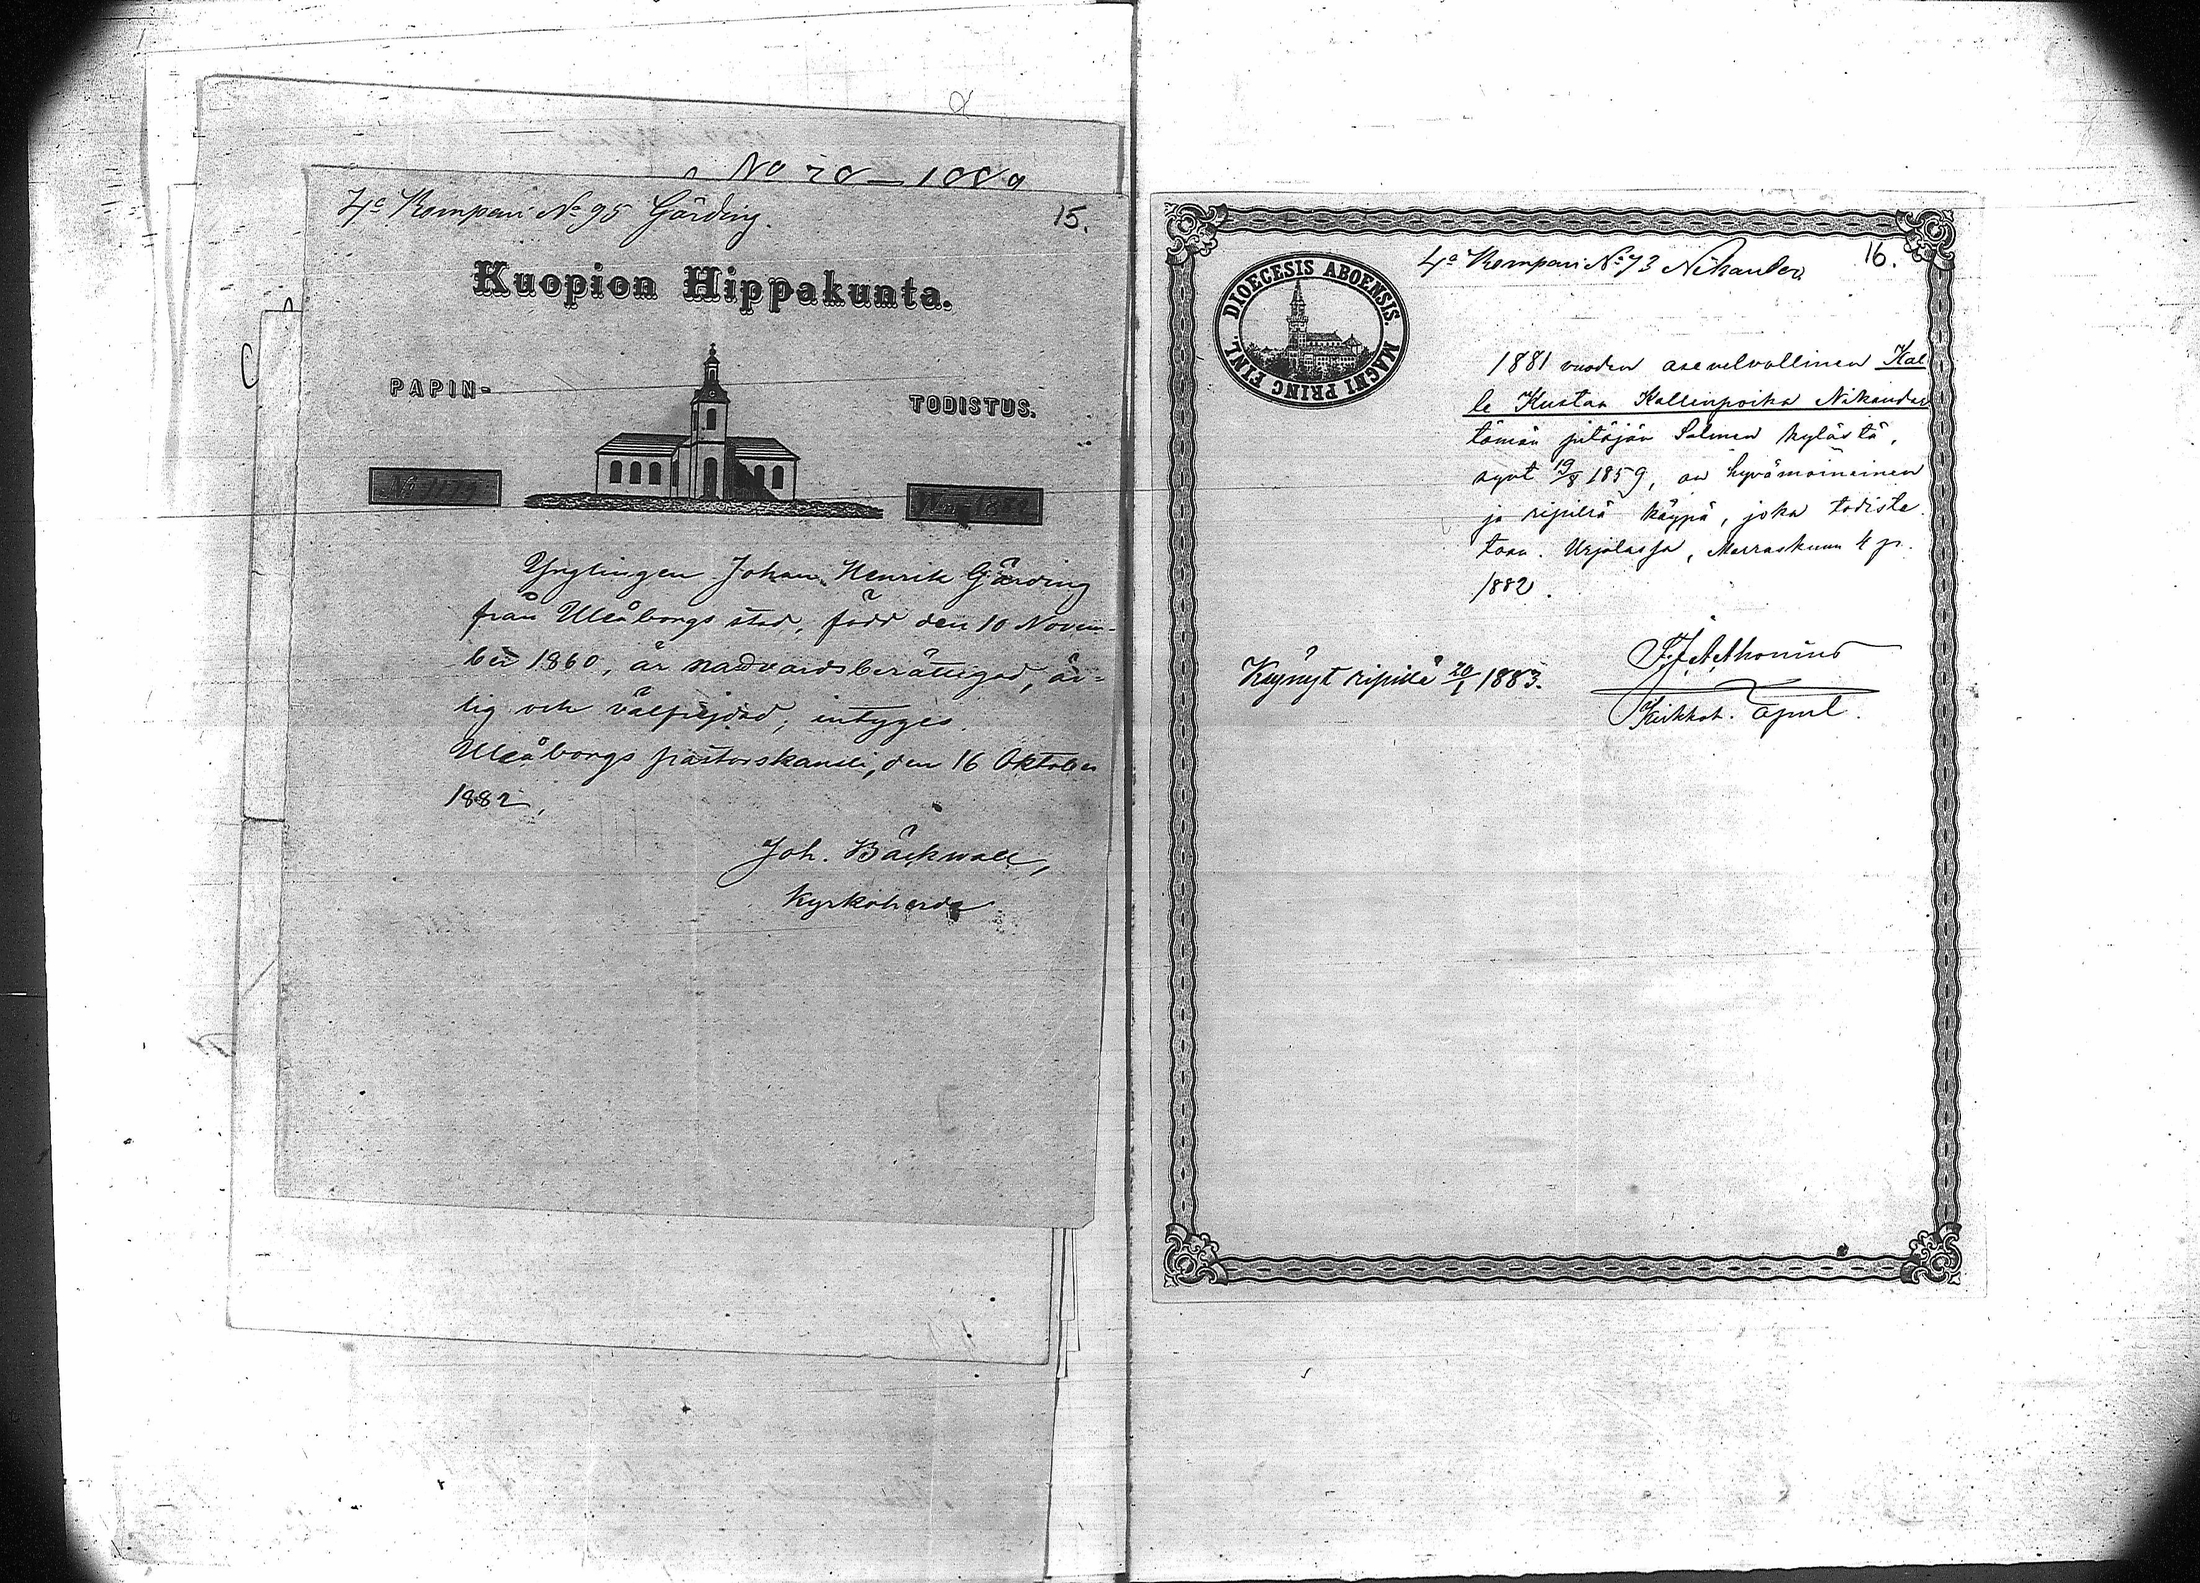 4e Kompani No 95 Gärding.
15.
Kuopion Hippakunta.
PAPIN-
TODISTUS.
Ynglingen Johan Henrik Gärding
från Uleåborgs stad, född den 10 Novem-
ber 1860, är nadvardsberättigad, är-
lig och välfrejdad, intyges.
Uleåborgs pastorskansli, den 16 Oktober
1882,
Joh. Bäckwall,
Kyrkoherde
4e Kompani No 73 Nikander
16.
DIOECESIS ABOENSIS. MAGNI PRINC FINL.
1881 vuoden asevelvollinen Kal
le Kustaa Kallenpoika Nikander
tämän pitäjän Salmen kylästä,
synt 19/8 1859, on hyvämaineinen
ja ripillä käypä, joka todiste
taan. Urjalassa, Marraskuun 4 p.
1882.
Käynyt ripillä 20/1 1883.
Kirkkoh. apul.